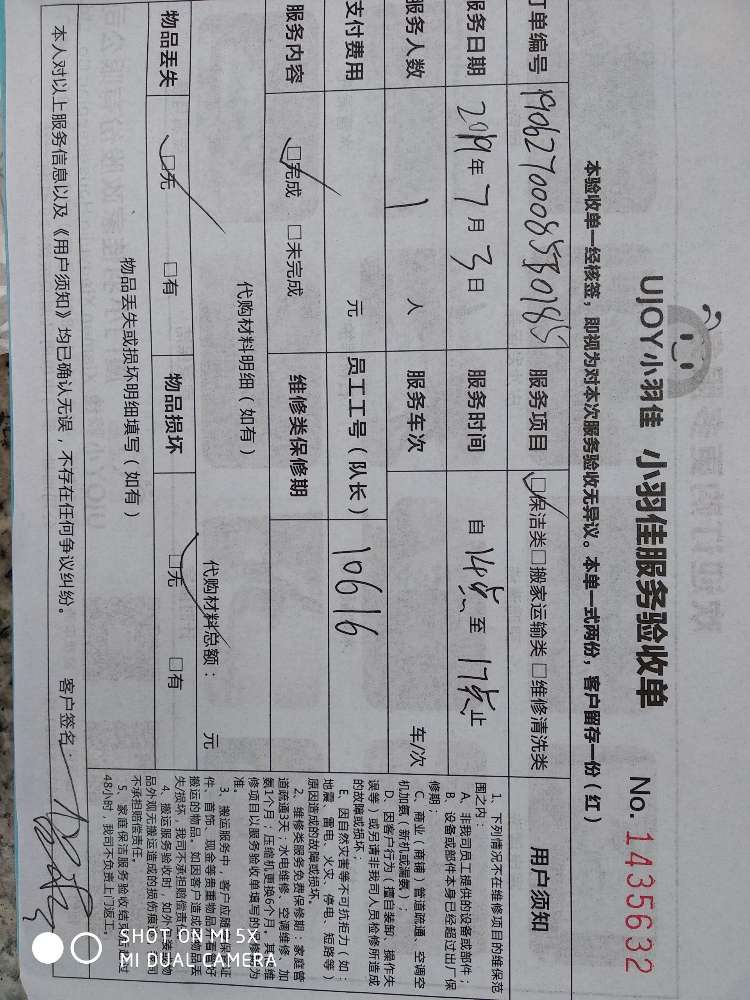 UJOY小羽佳 小羽佳服务验收单 No. 1435632
本验收单一经核签，即视为对本次服务验收无异议。本单一式两份，客户留存一份（红）
订单编号 服务项目 □保洁类□搬家运输类□维修清洗类
服务日期 2019年7月3日 服务时间 自 14点 至 17点止
服务人数 1 人 服务车次 车/次
支付费用 元 员工工号（队长） 10616
服务内容 □完成 □未完成 维修类保修期
代购材料明细（如有） 代购材料总额： 元
物品丢失 □无 □有 物品损坏 □无 □有
物品丢失或损坏明细填写（如有）
本人对以上服务信息以及《用户须知》均已确认无误，不存在任何争议纠纷。 客户签名：
用户须知
1、下列情况不在维修项目的维保范
围之内：
A、非我司员工提供的设备或部件；
B、设备或部件本身已经超过出厂保
修期；
C、商业（商铺）管道疏通、空调空
机加氨（新机或漏氨）；
D、因客户行为（擅自装卸、操作失
误等）或另请非我司人员检修所造成
的故障或损坏；
E、因自然灾害等不可抗拒力（如：
地震、雷电、火灾、停电、短路等）
原因造成的故障或损坏。
2、维修类服务免费保修期：家庭管
道疏通3天；水电维修、空调维修、加
氨1个月；压缩机更换6个月，其
修项目以服务验收单填写的保修期为
准。
3、搬运服务中，客户应
件、首饰、现金等贵重物品
搬运的物品。如因客户造成
失/损坏，我司不承担赔偿责
4、搬运服务验收时，如外
品外观无搬运造成的损伤痕
不承担赔偿责任。
5、家庭保洁服务验收结
48小时，我司不负责上门返工。
SHOT ON MI 5X
MI DUAL CAMERA